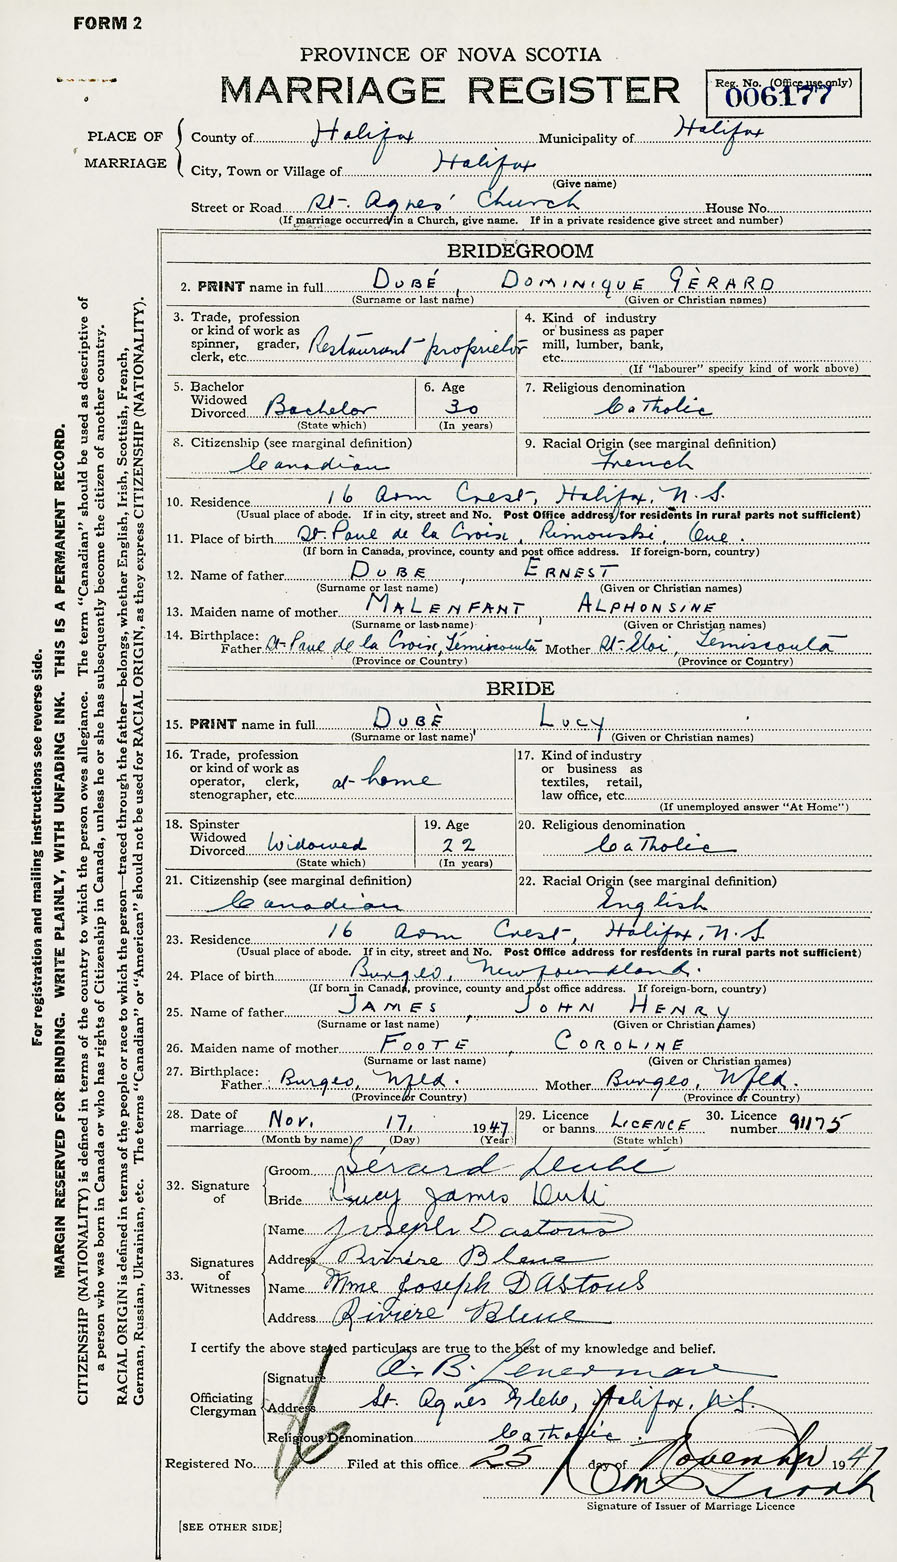 FORM 2
PROVINCE OF NOVA SCOTIA
MARRIAGE REGISTER
Reg. No. (Office use only)
006177
PLACE OF MARRIAGE
County of Halifax Municipality of Halifax
City, Town or Village of Halifax
(Give name)
Street or Road St. Agnes' Church House No.
(If marriage occurred in a Church, give name. If in a private residence give street and number)
BRIDEGROOM
2. PRINT name in full DUBÉ, DOMINIQUE GÈRARD
(Surname or last name) (Given or Christian names)
3. Trade, profession or kind of work as spinner, grader, clerk, etc. Restaurant proprietor
4. Kind of industry or business as paper mill, lumber, bank, etc.
(If "labourer" specify kind of work above)
5. Bachelor Widowed Divorced Bachelor
(State which)
6. Age 30
(In years)
7. Religious denomination
Catholic
8. Citizenship (see marginal definition)
Canadian
9. Racial Origin (see marginal definition)
French
10. Residence 16 Arm Crest, Halifax, N.S.
(Usual place of abode. If in city, street and No. Post Office address for residents in rural parts not sufficient)
11. Place of birth St Paul de la Croix, Rimouski, Que.
(If born in Canada, province, county and post office address. If foreign-born, country)
12. Name of father DUBE, ERNEST
(Surname or last name) (Given or Christian names)
13. Maiden name of mother MALENFANT ALPHONSINE
(Surname or last name) (Given or Christian names)
14. Birthplace:
Father St-Paul de la Croix, Témiscouta Mother St-Eloi, Temiscouta
(Province or Country) (Province or Country)
BRIDE
15. PRINT name in full DUBÈ LUCY
(Surname or last name) (Given or Christian names)
16. Trade, profession or kind of work as operator, clerk, stenographer, etc. at home
17. Kind of industry or business as textiles, retail, law office, etc.
(If unemployed answer "At Home")
18. Spinster Widowed Divorced Widowed
(State which)
19. Age 22
(In years)
20. Religious denomination
Catholic
21. Citizenship (see marginal definition)
Canadian
22. Racial Origin (see marginal definition)
English
23. Residence 16 Arm Crest, Halifax, N.S.
(Usual place of abode. If in city, street and No. Post Office address for residents in rural parts not sufficient)
24. Place of birth Burgeo, Newfoundland.
(If born in Canada, province, county and post office address. If foreign-born, country)
25. Name of father JAMES, JOHN HENRY
(Surname or last name) (Given or Christian names)
26. Maiden name of mother FOOTE, COROLINE
(Surname or last name) (Given or Christian names)
27. Birthplace:
Father Burgeo, Nfld. Mother Burgeo, Nfld.
(Province or Country) (Province or Country)
28. Date of marriage Nov. 17, 1947
(Month by name) (Day) (Year)
29. Licence or banns LICENCE
(State which)
30. Licence number 91175
32. Signature of
Groom Gérard Dubé
Bride Lucy James Dubé
33. Signatures of Witnesses
Name Joseph Dastous
Address Rivière Bleue
Name Mme Joseph DAstous
Address Rivière Bleue
I certify the above stated particulars are true to the best of my knowledge and belief.
Officiating Clergyman
Signature A. B.
Address St. Agnes Glebe, Halifax, N.S.
Religious Denomination Catholic.
Registered No. Filed at this office 25 day of November 1947
Signature of Issuer of Marriage Licence
[SEE OTHER SIDE]
For registration and mailing instructions see reverse side.
MARGIN RESERVED FOR BINDING. WRITE PLAINLY, WITH UNFADING INK. THIS IS A PERMANENT RECORD.
CITIZENSHIP (NATIONALITY) is defined in terms of the country to which the person owes allegiance. The term "Canadian" should be used as descriptive of
a person who was born in Canada or who has rights of Citizenship in Canada, unless he or she has subsequently become the citizen of another country.
RACIAL ORIGIN is defined in terms of the people or race to which the person—traced through the father—belongs, whether English, Irish, Scottish, French,
German, Russian, Ukrainian, etc. The terms "Canadian" or "American" should not be used for RACIAL ORIGIN, as they express CITIZENSHIP (NATIONALITY).